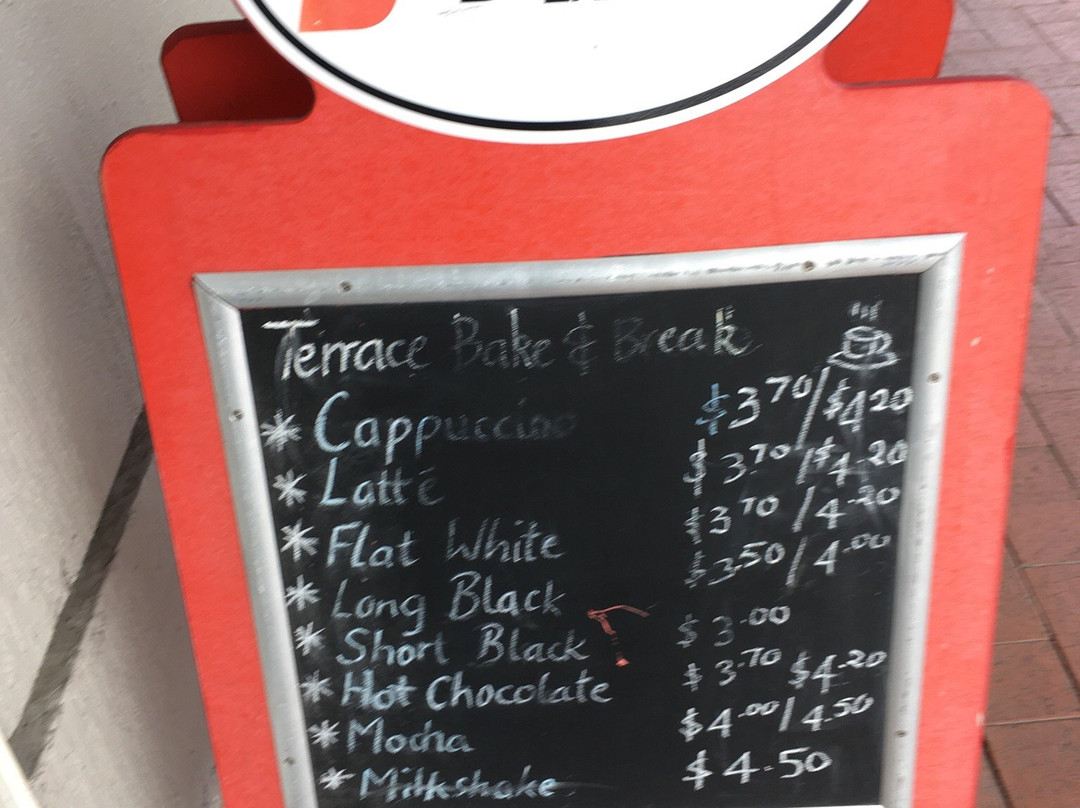 Terrace Bake & Break
* Cappuccino $3.70/$4.20
* Latté $3.70/$4.20
* Flat White $3.70/4.20
* Long Black $3.50/4.00
* Short Black $3.00
* Hot Chocolate $3.70 $4.20
* Mocha $4.00/4.50
* Milkshake $4.50